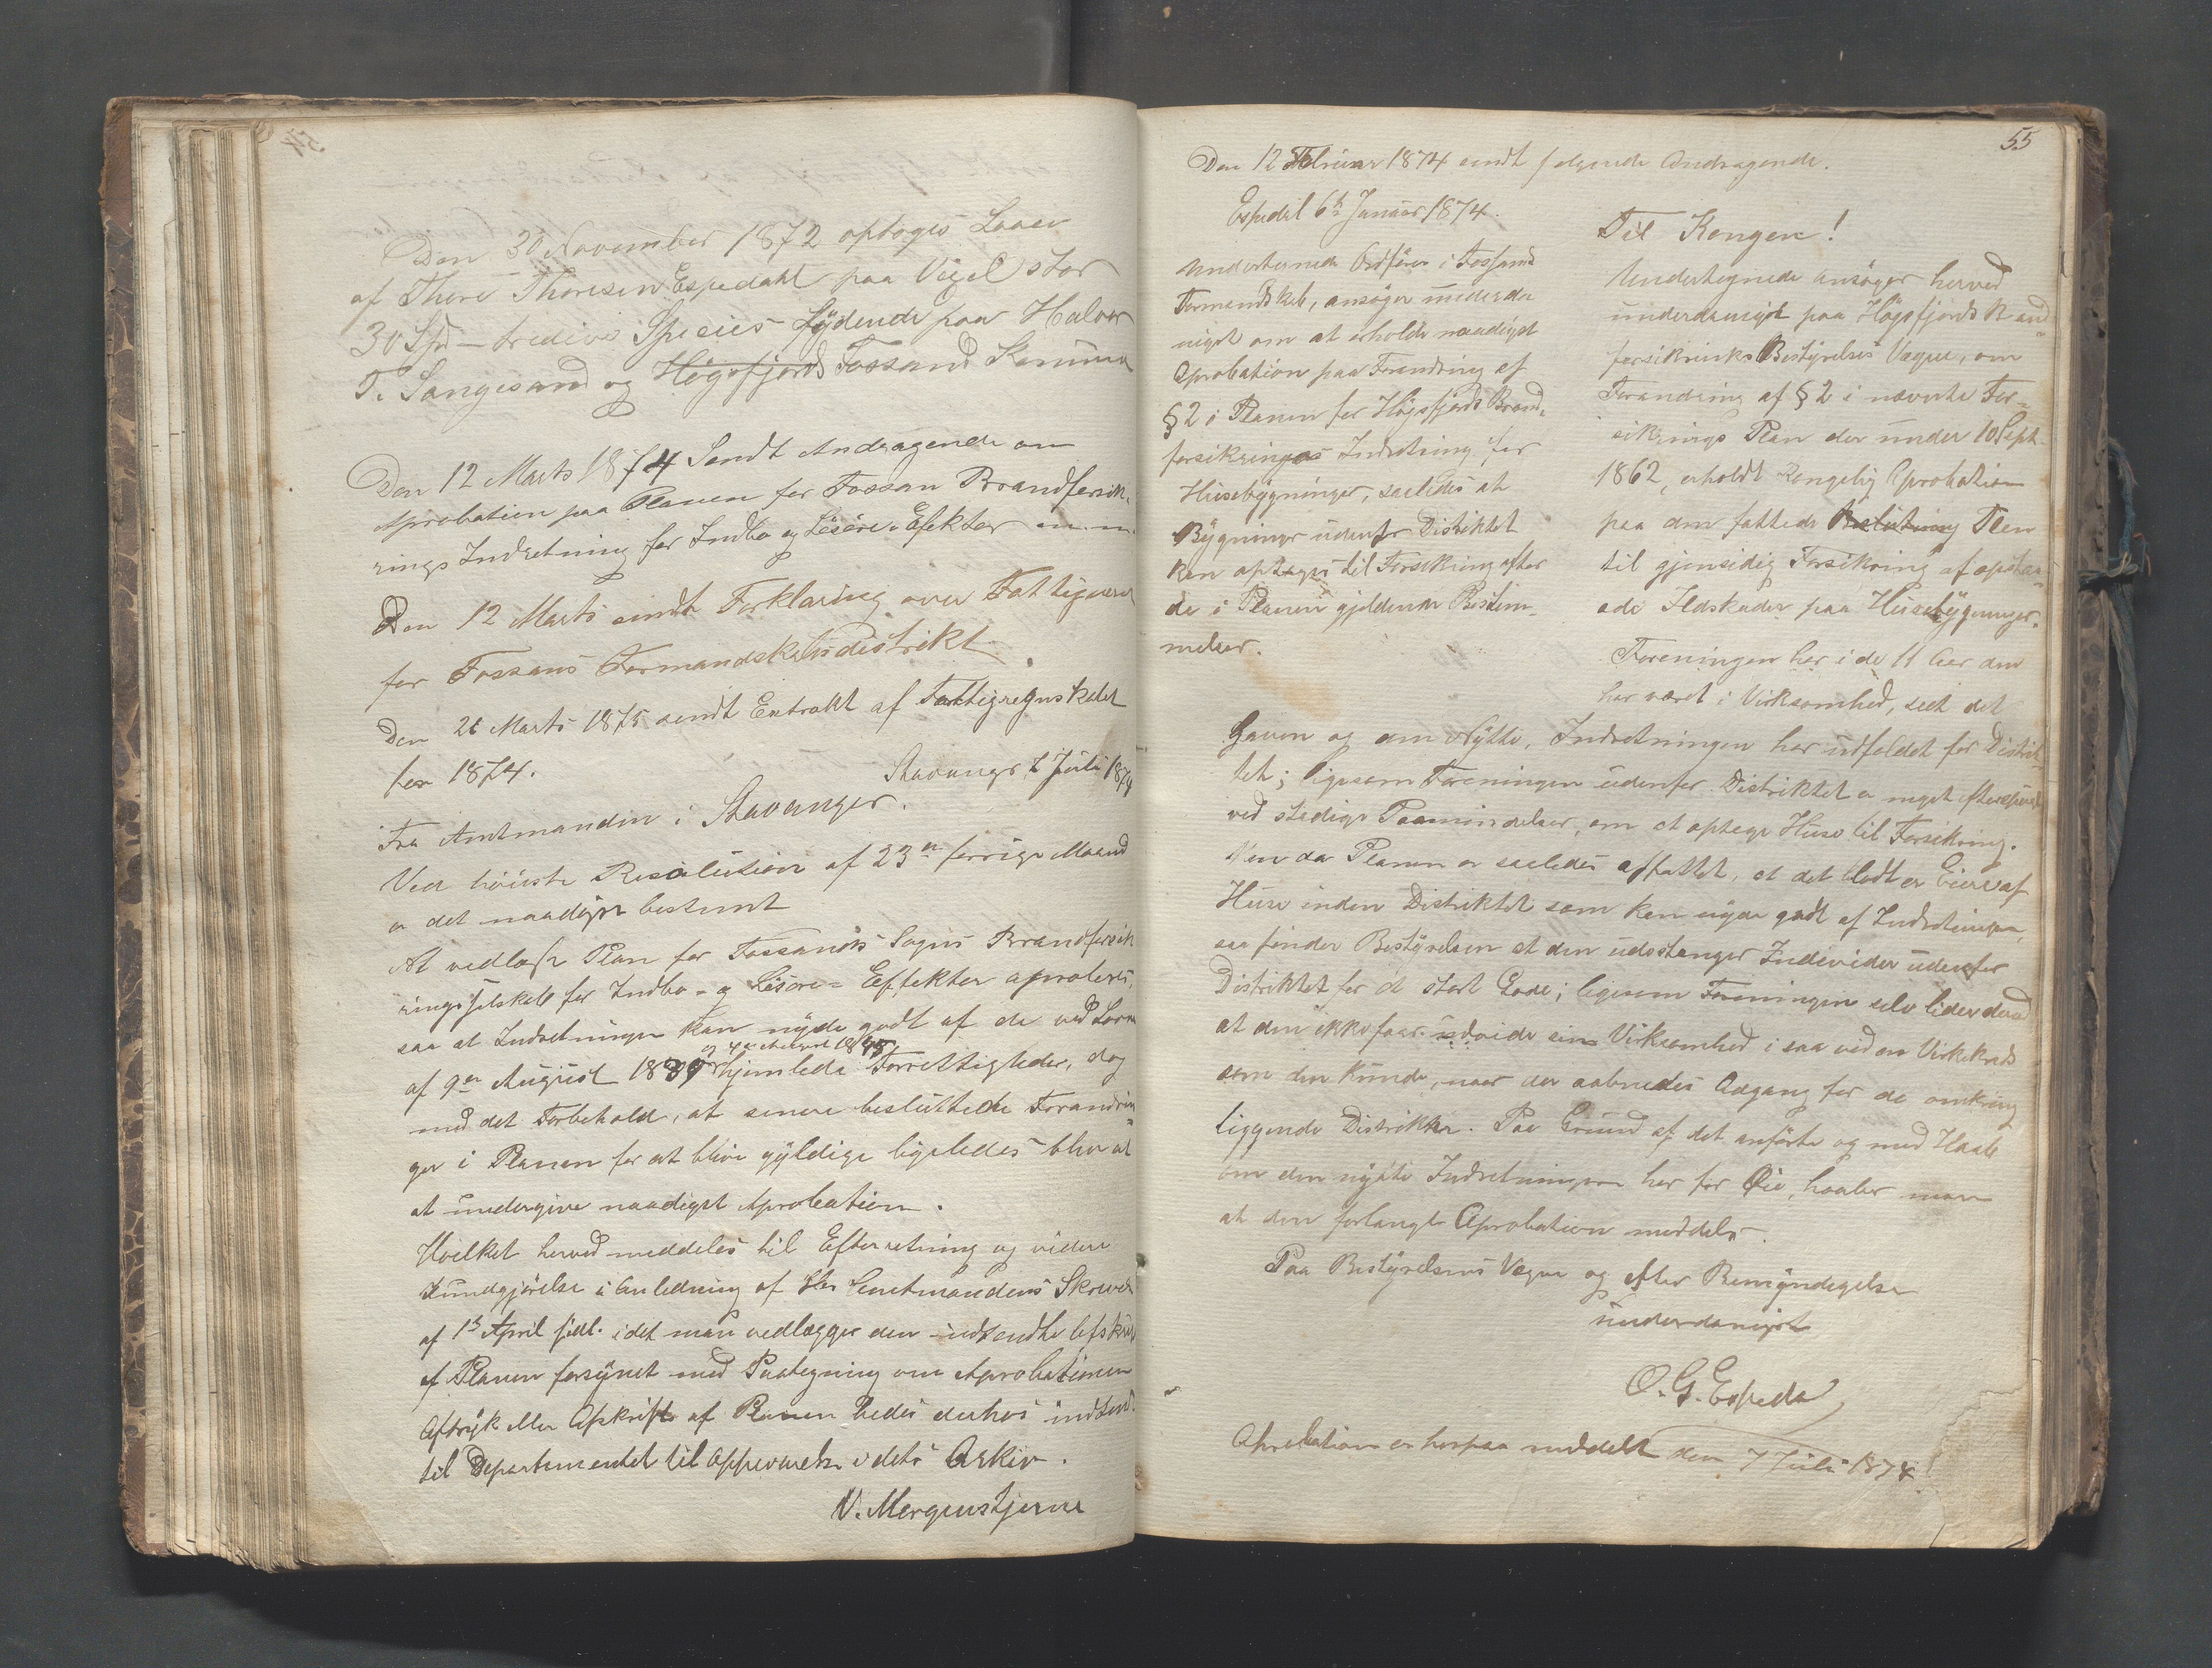 Den 30 November 1872 optoges Laaen
af Thore Thoresen Espedahl paa Vexel stor
30 Spd – tredive Species – lÿdende paa Halvor
T. Songesand og Högsfjords Fossand Komune
Den 12 Marts 1874 Sendt Andragende om
Aprobation paa Planen for Fossan Brandforsik-
rings Indretning for Indbo og Lösöre Efekter m.m.
Den 12 Marts sendt Forklaring over Fattigvæsen
for Fossans Formandskabsdistrikt.
Den 26 Marts 1875 sendt Extrakt af Fattigregnskabet
for 1874.
Stavanger 7 Juli 1874
Fra Amtmanden i Stavanger.
Ved höieste Resolution af 23de forrige Maaned
er det naadigst bestemt
At vedlagte Plan for Fossands Sogns Brandforsik
ringsselskab for Indbo- og Lösöre- Effekter aproberes,
saa at Indretningen kan nÿde godt af de ved Loven
og 4de August 1845
af 9de August 1839 hjemlede Forrettigheder, dog
med det Forbehold, at senere besluttede Forandrin
ger i Planen for at blive gÿldige ligeledes blive at
at undergive naadigst Aprobation.
Hvilket herved meddeles til Efterretning og videre
Kundgjörelse i Anledning af Hr Amtmandens Skrivelse
af 13 April sidl. idet man vedlægger den indsendte Afskrift
af Planen forsÿnet med Paategning om Aprobationen
Aftrÿk eller Afskrift af Planen bedes derhos indsend.
til Departementet til Oppevarelse i dets Arkiv.
V. Morgenstjerne
55
Den 12 Februar 1874 sendt fölgende Andragende.
Espedal 6te Januar 1874.
Undertegnede Ordförer i Fossand
Formendskab, ansöger underda
nigst om at erholde naadigst
Aprobation paa Forandring af
§ 2 i Planen for Högsfjords Brand-
forsikrings Indretning for
Husebÿgninger, saaledes at
Bÿgninger udenfor Distriktet
kan optages til Forsikring efter
de i Planen gjeldende Bestem-
melser.
Til Kongen!
Undertegnede ansöger herved
underdanigst paa Högsfjords Brand
forsikrinks Bestÿrelses Vegne, om
Forandring af § 2 i nævnte For-
sikrings Plan der under 10 Sept.
1862, erholdt Kongelig Aprobation
paa den fattede Beslutning Plan
til gjensidig Forsikring af opstaa-
ede Ildskader paa Husebÿgninger.
Foreningen har i de 11 Aar den
har været i Virksomhed, seet det
Gavn og den Nÿtte, Indretningen har udfoldet for Distrik-
tet; ligesom Foreningen udenfor Distriktet er meget efterspurgt
ved stadige Paamindelser, om at optage Huse til Forsikring.
Men da Planen er saaledes affattet, at det blodt er Eiere af
Huse inden Distriktet som kan nÿde godt af Indretningen,
saa finder Bestÿrelsen at den udestenger Individer udenfor
Distriktet for et stort Gode; ligesom Foreningen selv lider derved
at den ikke faar udvide sin Virksomhed i saa vid en Virkekreds
som den kunde, naar der aabnedes Adgang for de omkring
liggende Distrikter. Paa Grund af det anförte og med Haab
om den nÿtte Indretningen har for Öie, haaber man
at den forlangte Aprobation meddeles.
Paa Bestÿrelsens Vegne og efter Bemÿndigelse
underdanigst
O. G. Espedal
Aprobation er herpaa meddelt den 7 Juli 1874.